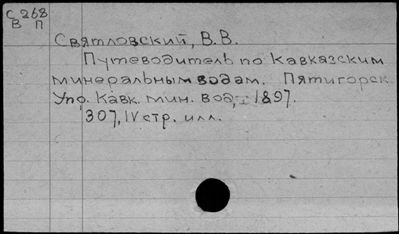 С 268
В П
Святловский, В.В.
Путеводитель по Кавказским
минеральным водам. Пятигорск.
Упр. Кавк. мин. вод, 1897.
307, IV стр. илл.